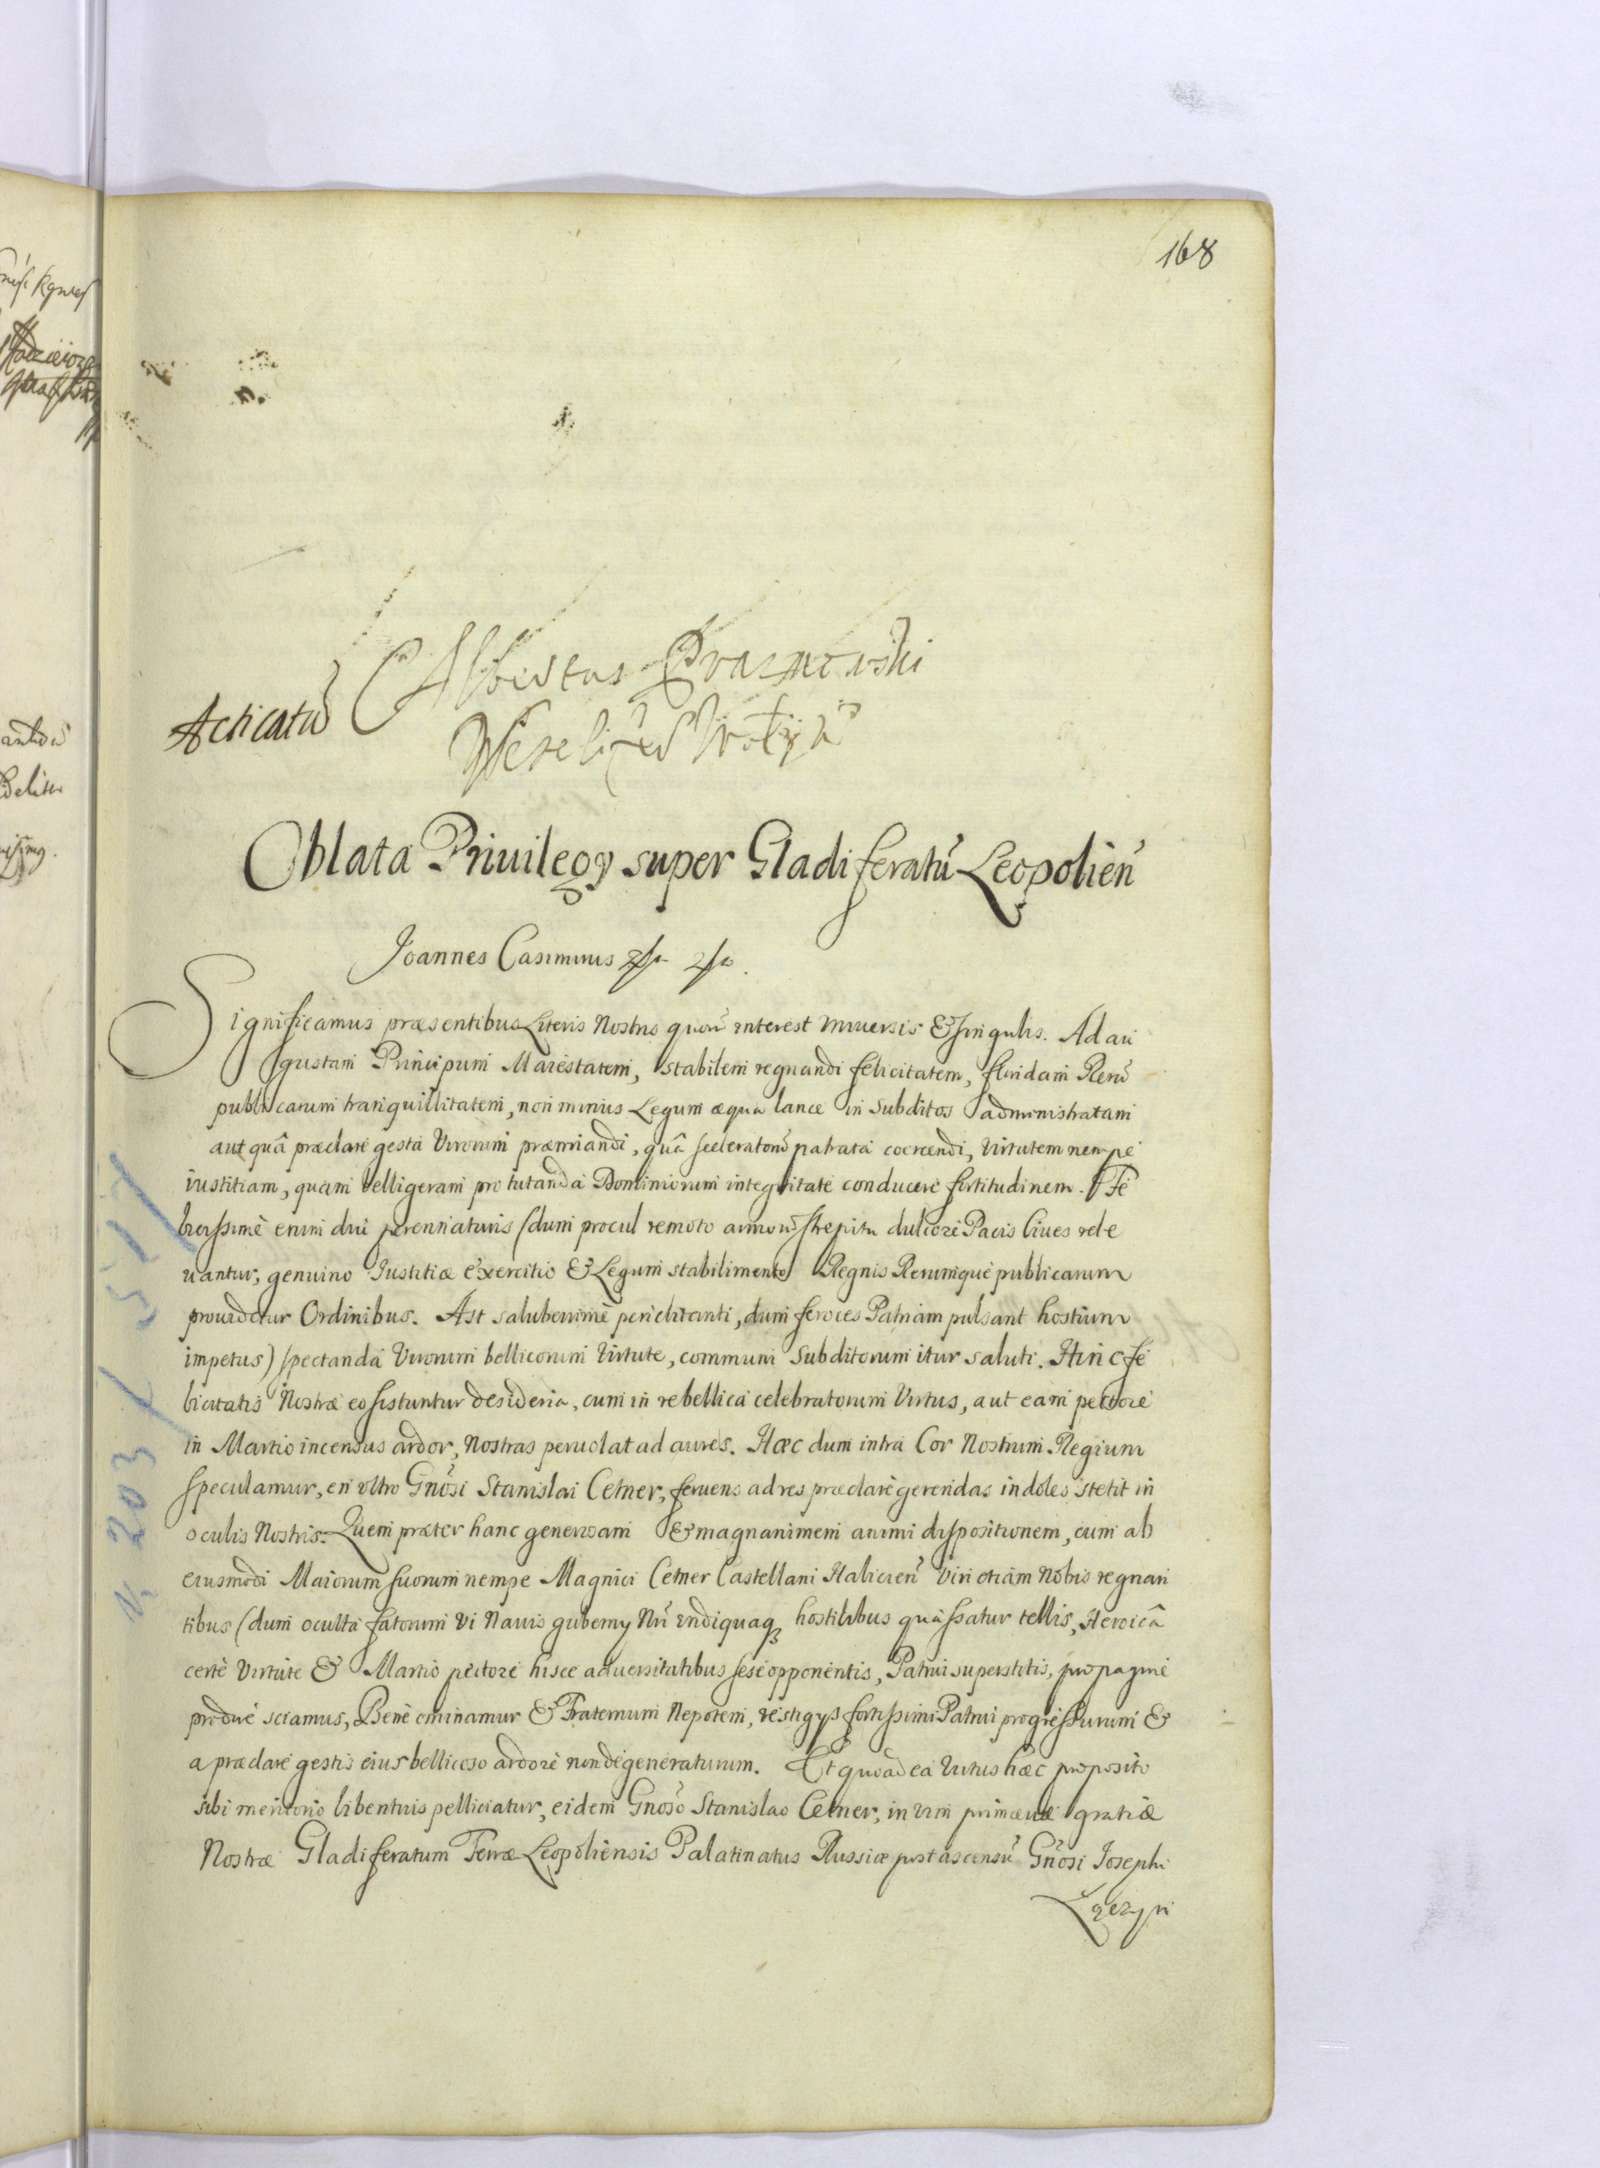 168
Acticatũ
Albertus Prazmowski
Oblata Priuilegy super Gladiferatũ Leopolien̄
Joannes Casimirus
Significamus præsentibus Literis Nostris quorũ interest vniuersis & singulis. Ad au
gustam Principum Maiestatem, stabilem regnandi felicitatem, floridam Rerũ
publicarum tranquillitatem, non minus Legum æqua lance in Subditos administratam
aut quâ præclare gesta Virorum præmiandi, quâ sceleratorũ patrata coercendi, Virtutem nempe
iustitiam, quam belligeram pro tutanda Dominiorum integritate conducere fortitudinem. Fe
licissimè enim diu perennaturis (dum procul remoto armorũ strepitu dulciore Pacis Ciues rele
uantur, genuino Justitiæ exercitio & Legum stabilimento Regnis Rerumque publicarum
prouidetur Ordinibus. Ast saluberrimè periclitanti, dum feroces Patriam pulsant hostium
impetus) spectanda Virorum bellicorum Virtute, communi Subditorum itur saluti. Hinc fe
licitatis Nostræ eo sistuntur desideria, cum in re bellica celebratorum Virtus, aut eam pectore
in Martio incensus ardor, Nostras peruolat ad aures. Hæc dum intra Cor Nostrum Regium
speculamur, en vltro Gñosi Stanislai Cetner, feruens ad res præclarè gerendas indoles stetit in
oculis Nostris. Quem præter hanc generosam & magnanimem animi dispositionem, cum ab
eiusmodi Maiorum suorum nempe Magnici Cetner Castellani Halicien̄ Viri etiam Nobis regnan
tibus (dum oculta fatorum Vi Nauis gubernÿ Nri vndiquaq hostilibus quassatur tellis, Heroicâ
certè Virtute & Martio pectore hisce aduersitatibus sese opponentis, Patrui superstitis, propagine
prodire sciamus, Benè ominamur & Fraternum Nepotem, vestigys fortissimi Patrui progressurum &
a præclarè gestis eius bellicoso ardore non degeneraturum. Et quo ad ea Virtus hæc proposito
sibi meritorio libentius pelliciatur, eidem Gnoso Stanislao Cetner, in vim primæuæ gratiæ
Nostræ Gladiferatum Terræ Leopoliensis Palatinatus Russiæ post ascensũ Gñosi Josephi
N 203 / 517